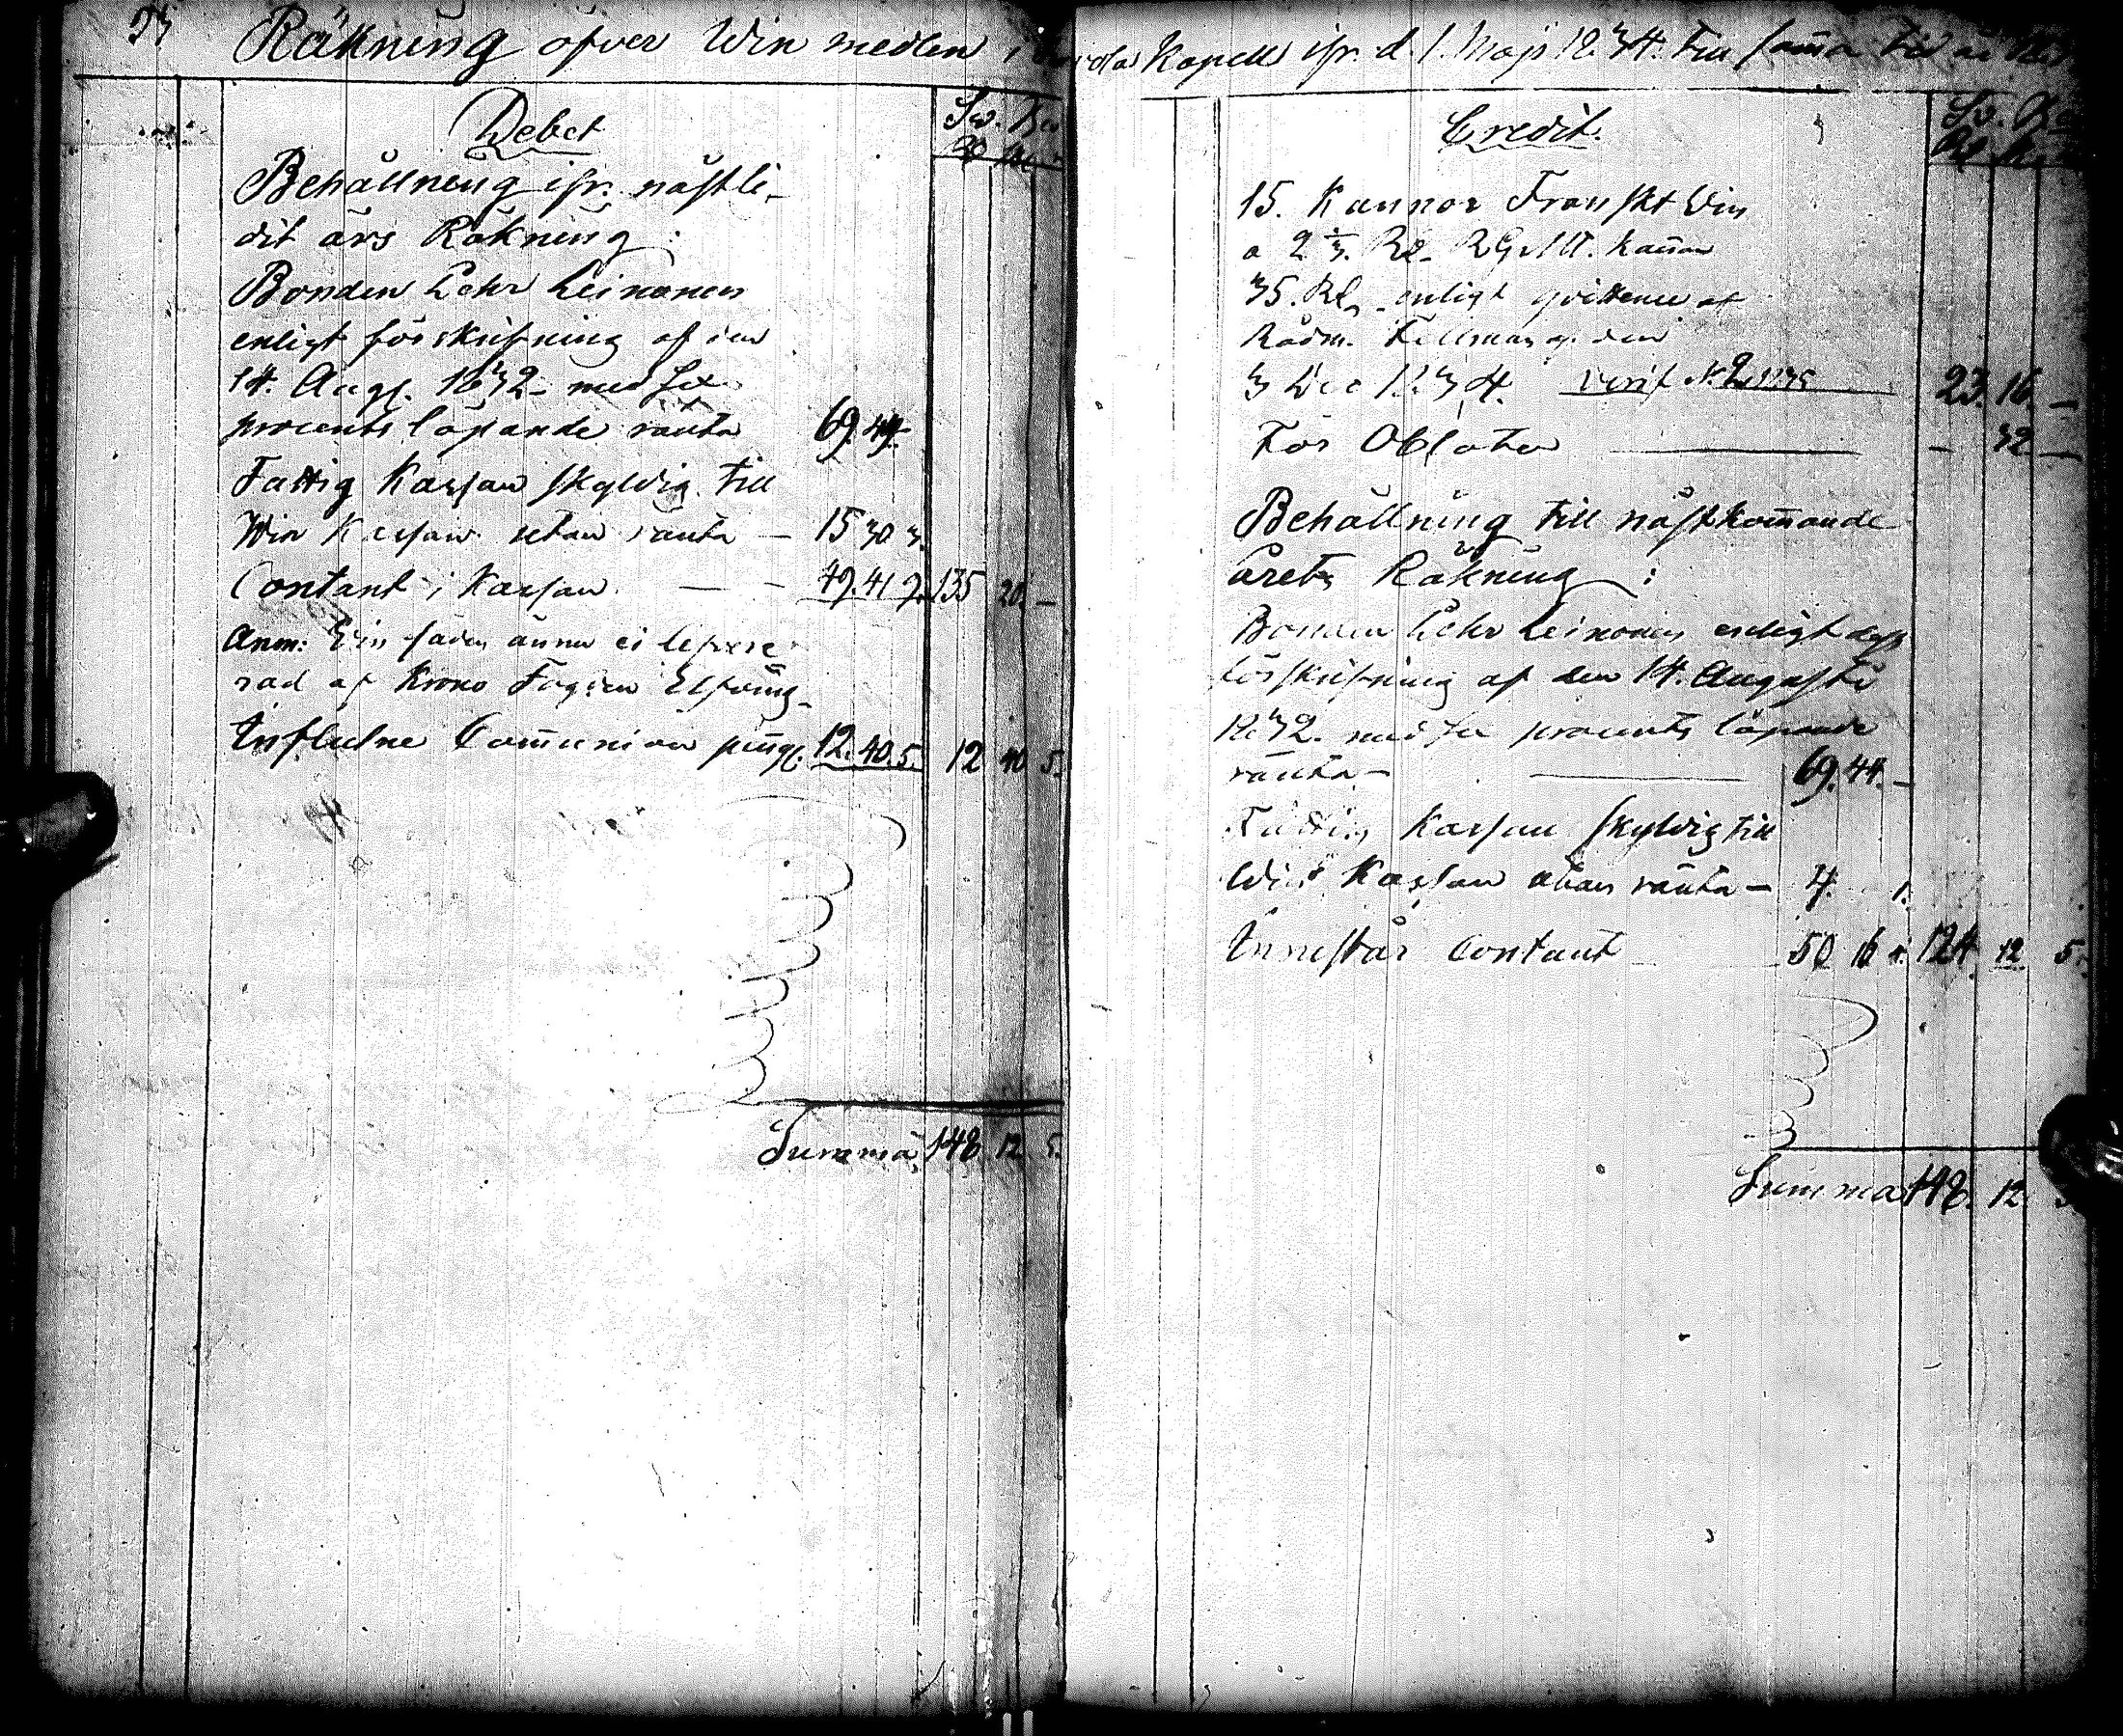 Räkning öfver Win medlen i Kapell ifr. d. 1. Maji 1834. till samma tid år
Debet
Behållning ifr. nästli-
dit års Räkning:
Bonden Pehr Leinonen
enligt förskrifning af den
14. Aug. 1832 med sex
procents löpande ränta 69. 44.
Fattig Kassan skyldig till
Win Kassan utan ränta — 15 30 3.
Contant i Kassan — — 49. 41 9. 135 20. —
Anm: säden ännu ei leфvere-
rad af Krono Fogden Elfving
Influtne Communion pengr. 12. 40. 5. 12 40 5.
Summa 148 12 5.
Credit.
15. Kannor Franskt Vin
a 2 1/3. Rd. RGs kannan
35. Rd enligt qvittence af
Rådm. Fellman af den
3 Dec 1834. Verif N. 23. 16. —
För Oblater — — 32 —
Behållning till nästkommande
årets Räkning:
Bonden Pehr Leinonen enligt dess
förskrifning af den 14. Augusti
1832. med sex procents löpande
ränta — 69. 44. —
Fattig Kassan skyldig till
Win Kassan utan ränta — 4. 1.
Innestår Contant — 50 16 4. 124. 12 5.
Summa 148. 12